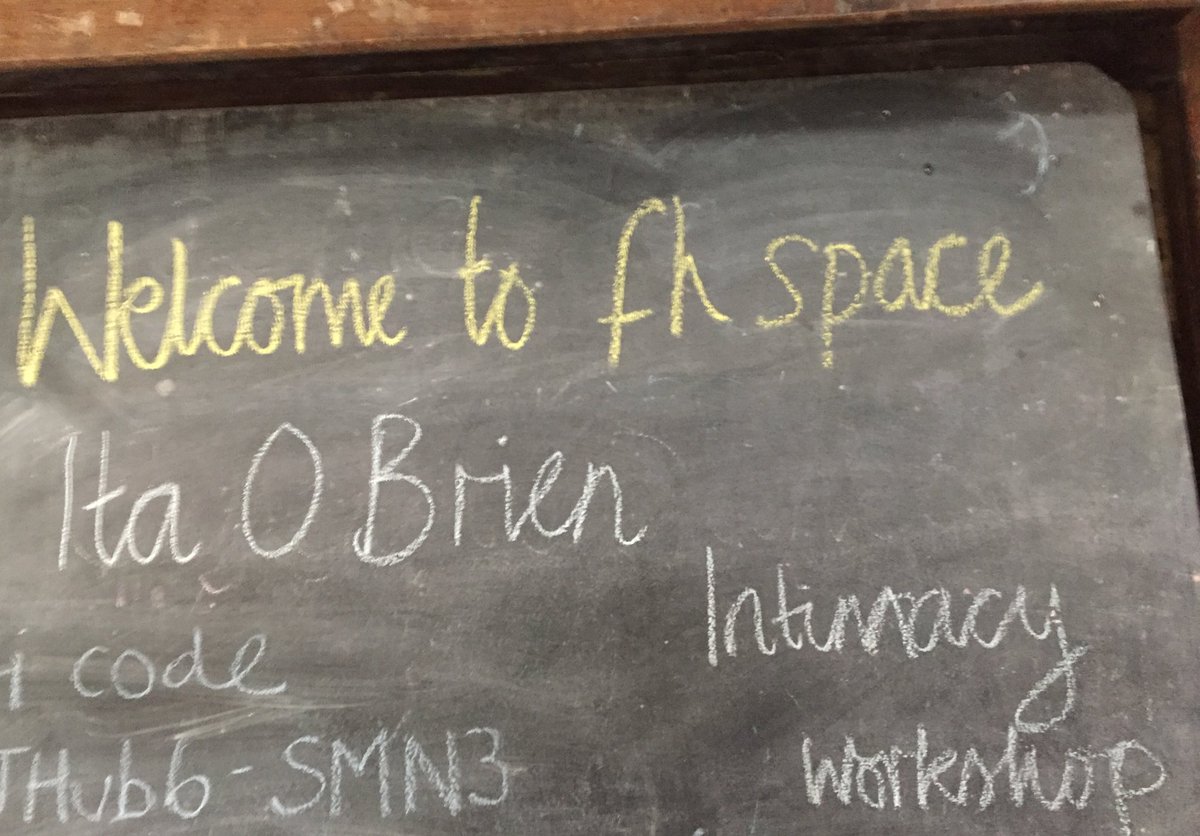 Welcome to fh space
Ita O Brien
Intimacy
code
workshop
THubb-SMN3